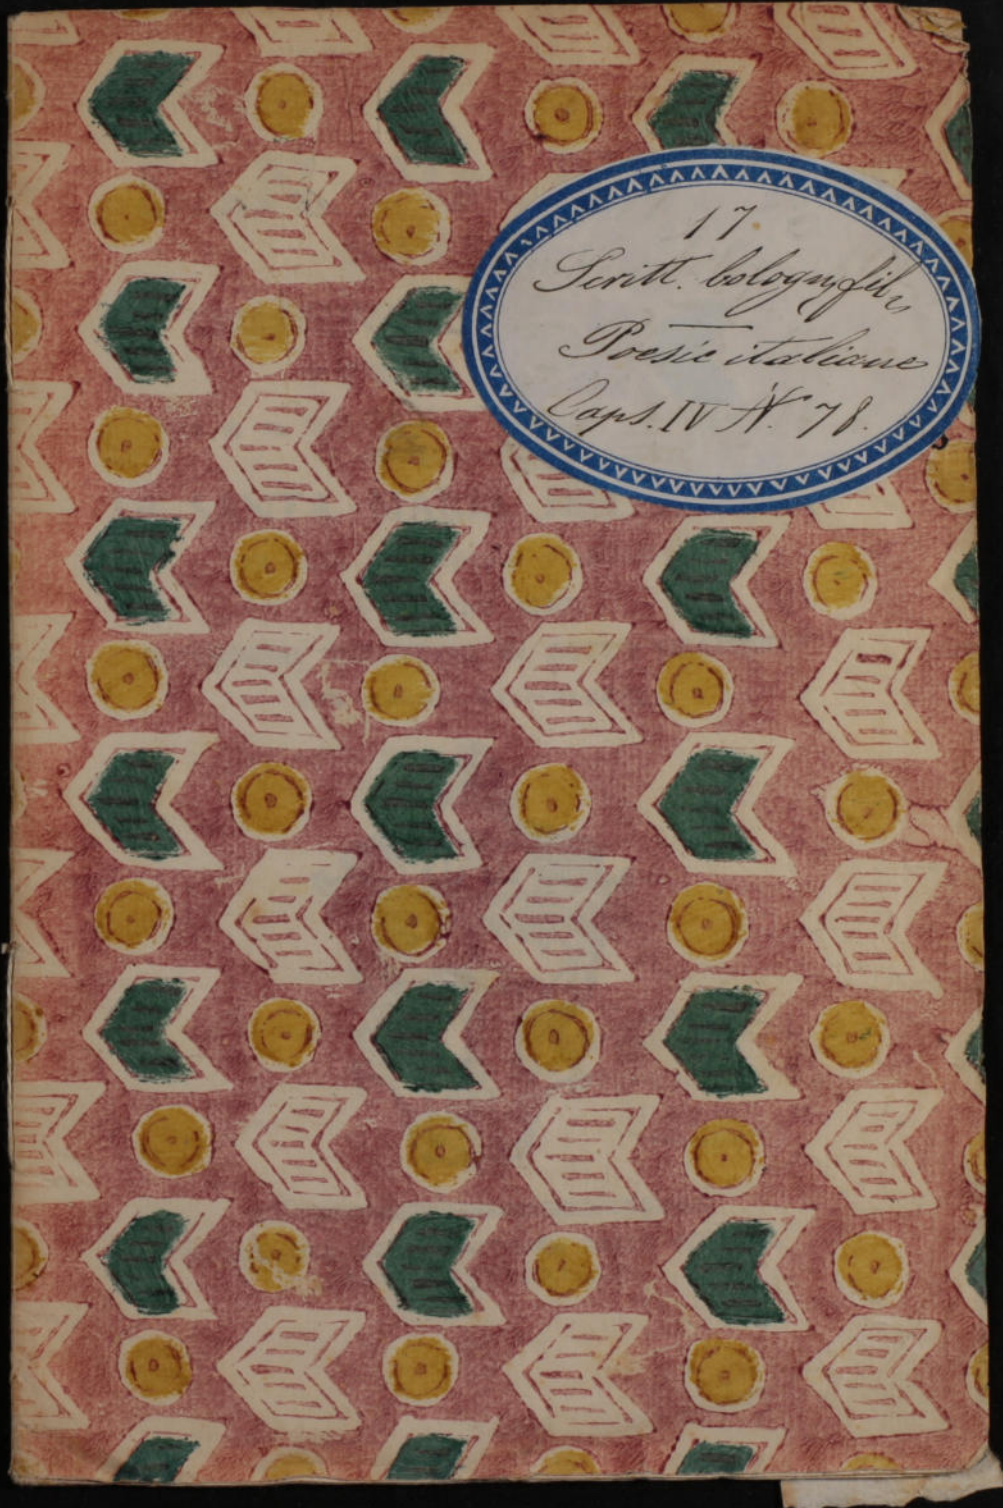 17.
Scritt. bologn, fil.
Poesie italiane
Caps. IV N. 78.